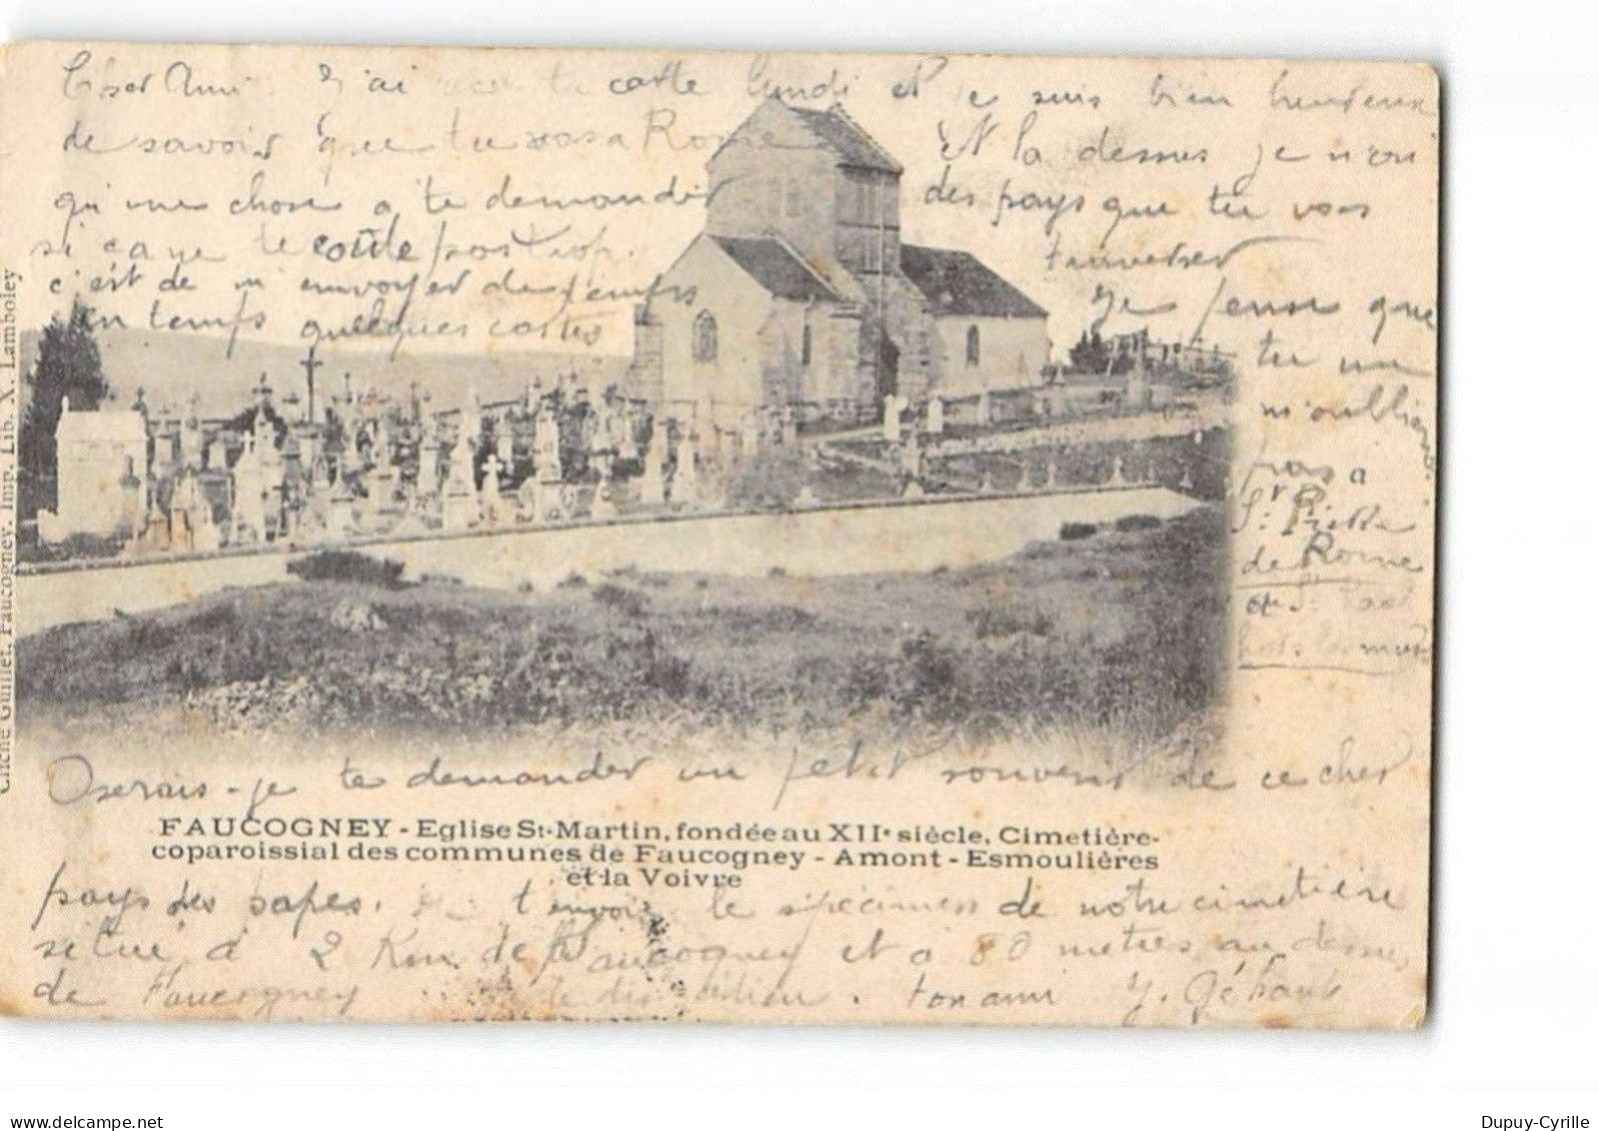 Cher Ami. J'ai recu ta carte lundi et je suis bien heureux
de savoir que tu vas a Rome Et la dessus je n'ai
qu'une chose a te demander
si ça ne te coûte pas trop.
c'est de m'envoyer de temps
en temps quelques cartes
des pays que tu vas
traverser
Je pense que
tu ne
m'oublieras
pas a
St Pierre
de Rome
et St Paul
hors les murs
Oserais-je te demander un petit souvenir de ce cher
FAUCOGNEY - Eglise St-Martin, fondée au XIIe siècle, Cimetière-
coparoissial des communes de Faucogney - Amont - Esmoulières
et la Voivre
pays des papes. Je t'envoie le spécimen de notre cimetière
situé à 2 Km. de Faucogney et a 80 metres au dessus
de Faucogney te dis adieu. ton ami
Cliché Guillet, Faucogney. Imp. Lib. X. Lamboley
delcampe.net
Dupuy-Cyrille